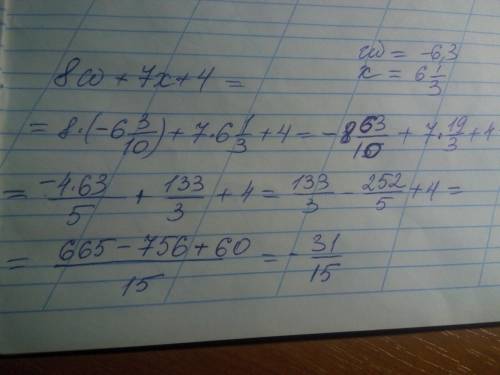 w = -6,3
8w + 7x + 4 =
x = 6 1/3
= 8·(-6 3/10) + 7·6 1/3 + 4 = -8 63/10 + 7·19/3 + 4
= -4·63/5 + 133/3 + 4 = 133/3 - 252/5 + 4 =
= 665 - 756 + 60/15 = - 31/15